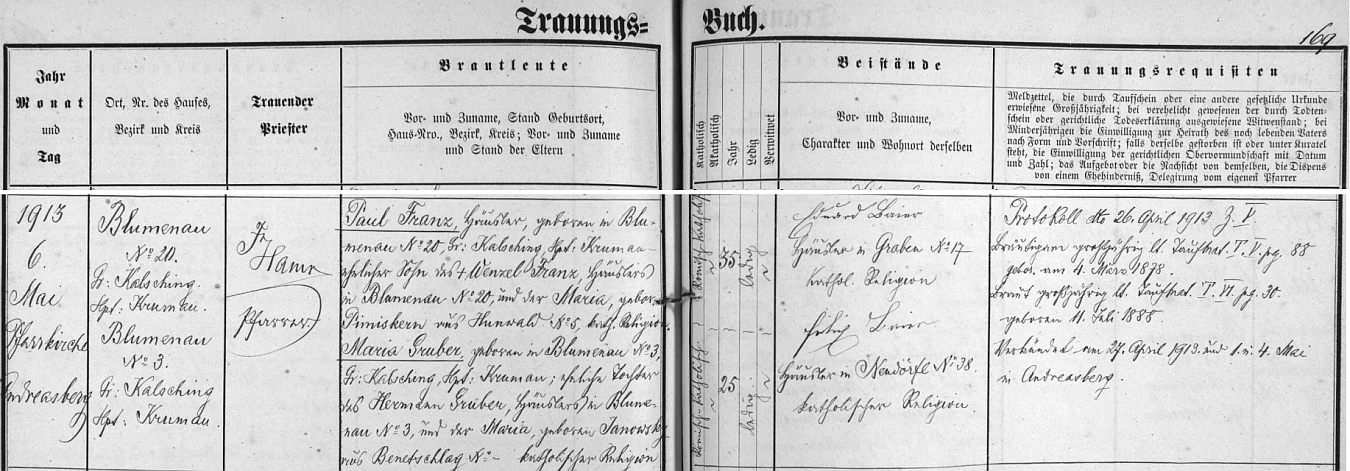 Trauungs=
Buch.
169
Jahr
Monat
und
Tag
Ort, Nr. des Hauses,
Bezirk und Kreis
Trauender
Priester
Brautleute
Vor- und Zuname, Stand Geburtsort,
Haus-Nro., Bezirk, Kreis; Vor- und Zuname
und Stand der Eltern
Katholisch
Akatholisch
Jahr
Ledig
Verwitwet
Beistände
Vor- und Zuname,
Charakter und Wohnort derselben
Trauungsrequisiten
Meldzettel, die durch Taufschein oder eine andere gesetzliche Urkunde
erwiesene Großjährigkeit; bei verehelicht gewesenen der durch Todten-
schein oder gerichtliche Todeserklärung ausgewiesene Witwenstand; bei
Minderjährigen die Einwilligung zur Heirath des noch lebenden Vaters
nach Form und Vorschrift; falls derselbe gestorben ist oder unter Kuratel
steht, die Einwilligung der gerichtlichen Obervormundschaft mit Datum
und Zahl; das Aufgebot oder die Nachsicht von demselben, die Dispens
von einem Ehehinderniß, Delegirung vom eigenen Pfarrer
1913
6.
Mai
Pfarrkirche
Andreasberg
Blumenau
No 20.
Gr: Kalsching.
Hpt: Krumau.
Blumenau
No 3.
Gr: Kalsching
Hpt: Krumau.
Hamr
Pfarrer
Paul Franz, Häusler, geboren in Blu-
menau No 20, Gr: Kalsching, Hpt: Krumau-
ehelicher Sohn des + Wenzel Franz, Häuslers
in Blumenau No 20, und der Maria, gebor.
Pimiskern aus Hunwald No 5, kath. Religion
Maria Gruber, geboren in Blumenau No 3,
Gr: Kalsching, Hpt: Krumau; eheliche Tochter
des Hermann Gruber, Häuslers in Blume-
nau No 3, und der Maria, geboren Janowsky
aus Benetschlag No - katholischer Religion
Römisch-katholisch
35
ledig
Römisch-katholisch
25
ledig
Eduard Baier
Häusler in Graben No 17
kathol. Religion
Baier
Häusler in Neudörfl No 38.
katholischer Religion.
Protokoll dto 26. April 1913 Z. V.
Bräutigam großjährig lt. Taufmat. T. V. pg. 88
gebor. am 4. März 1878.
Braut großjährig lt. Taufmat. T. VI. pg. 30.
geboren 11. Juli 1888
Verkündet am 27. April 1913 und 1. u. 4. Mai
in Andreasberg.